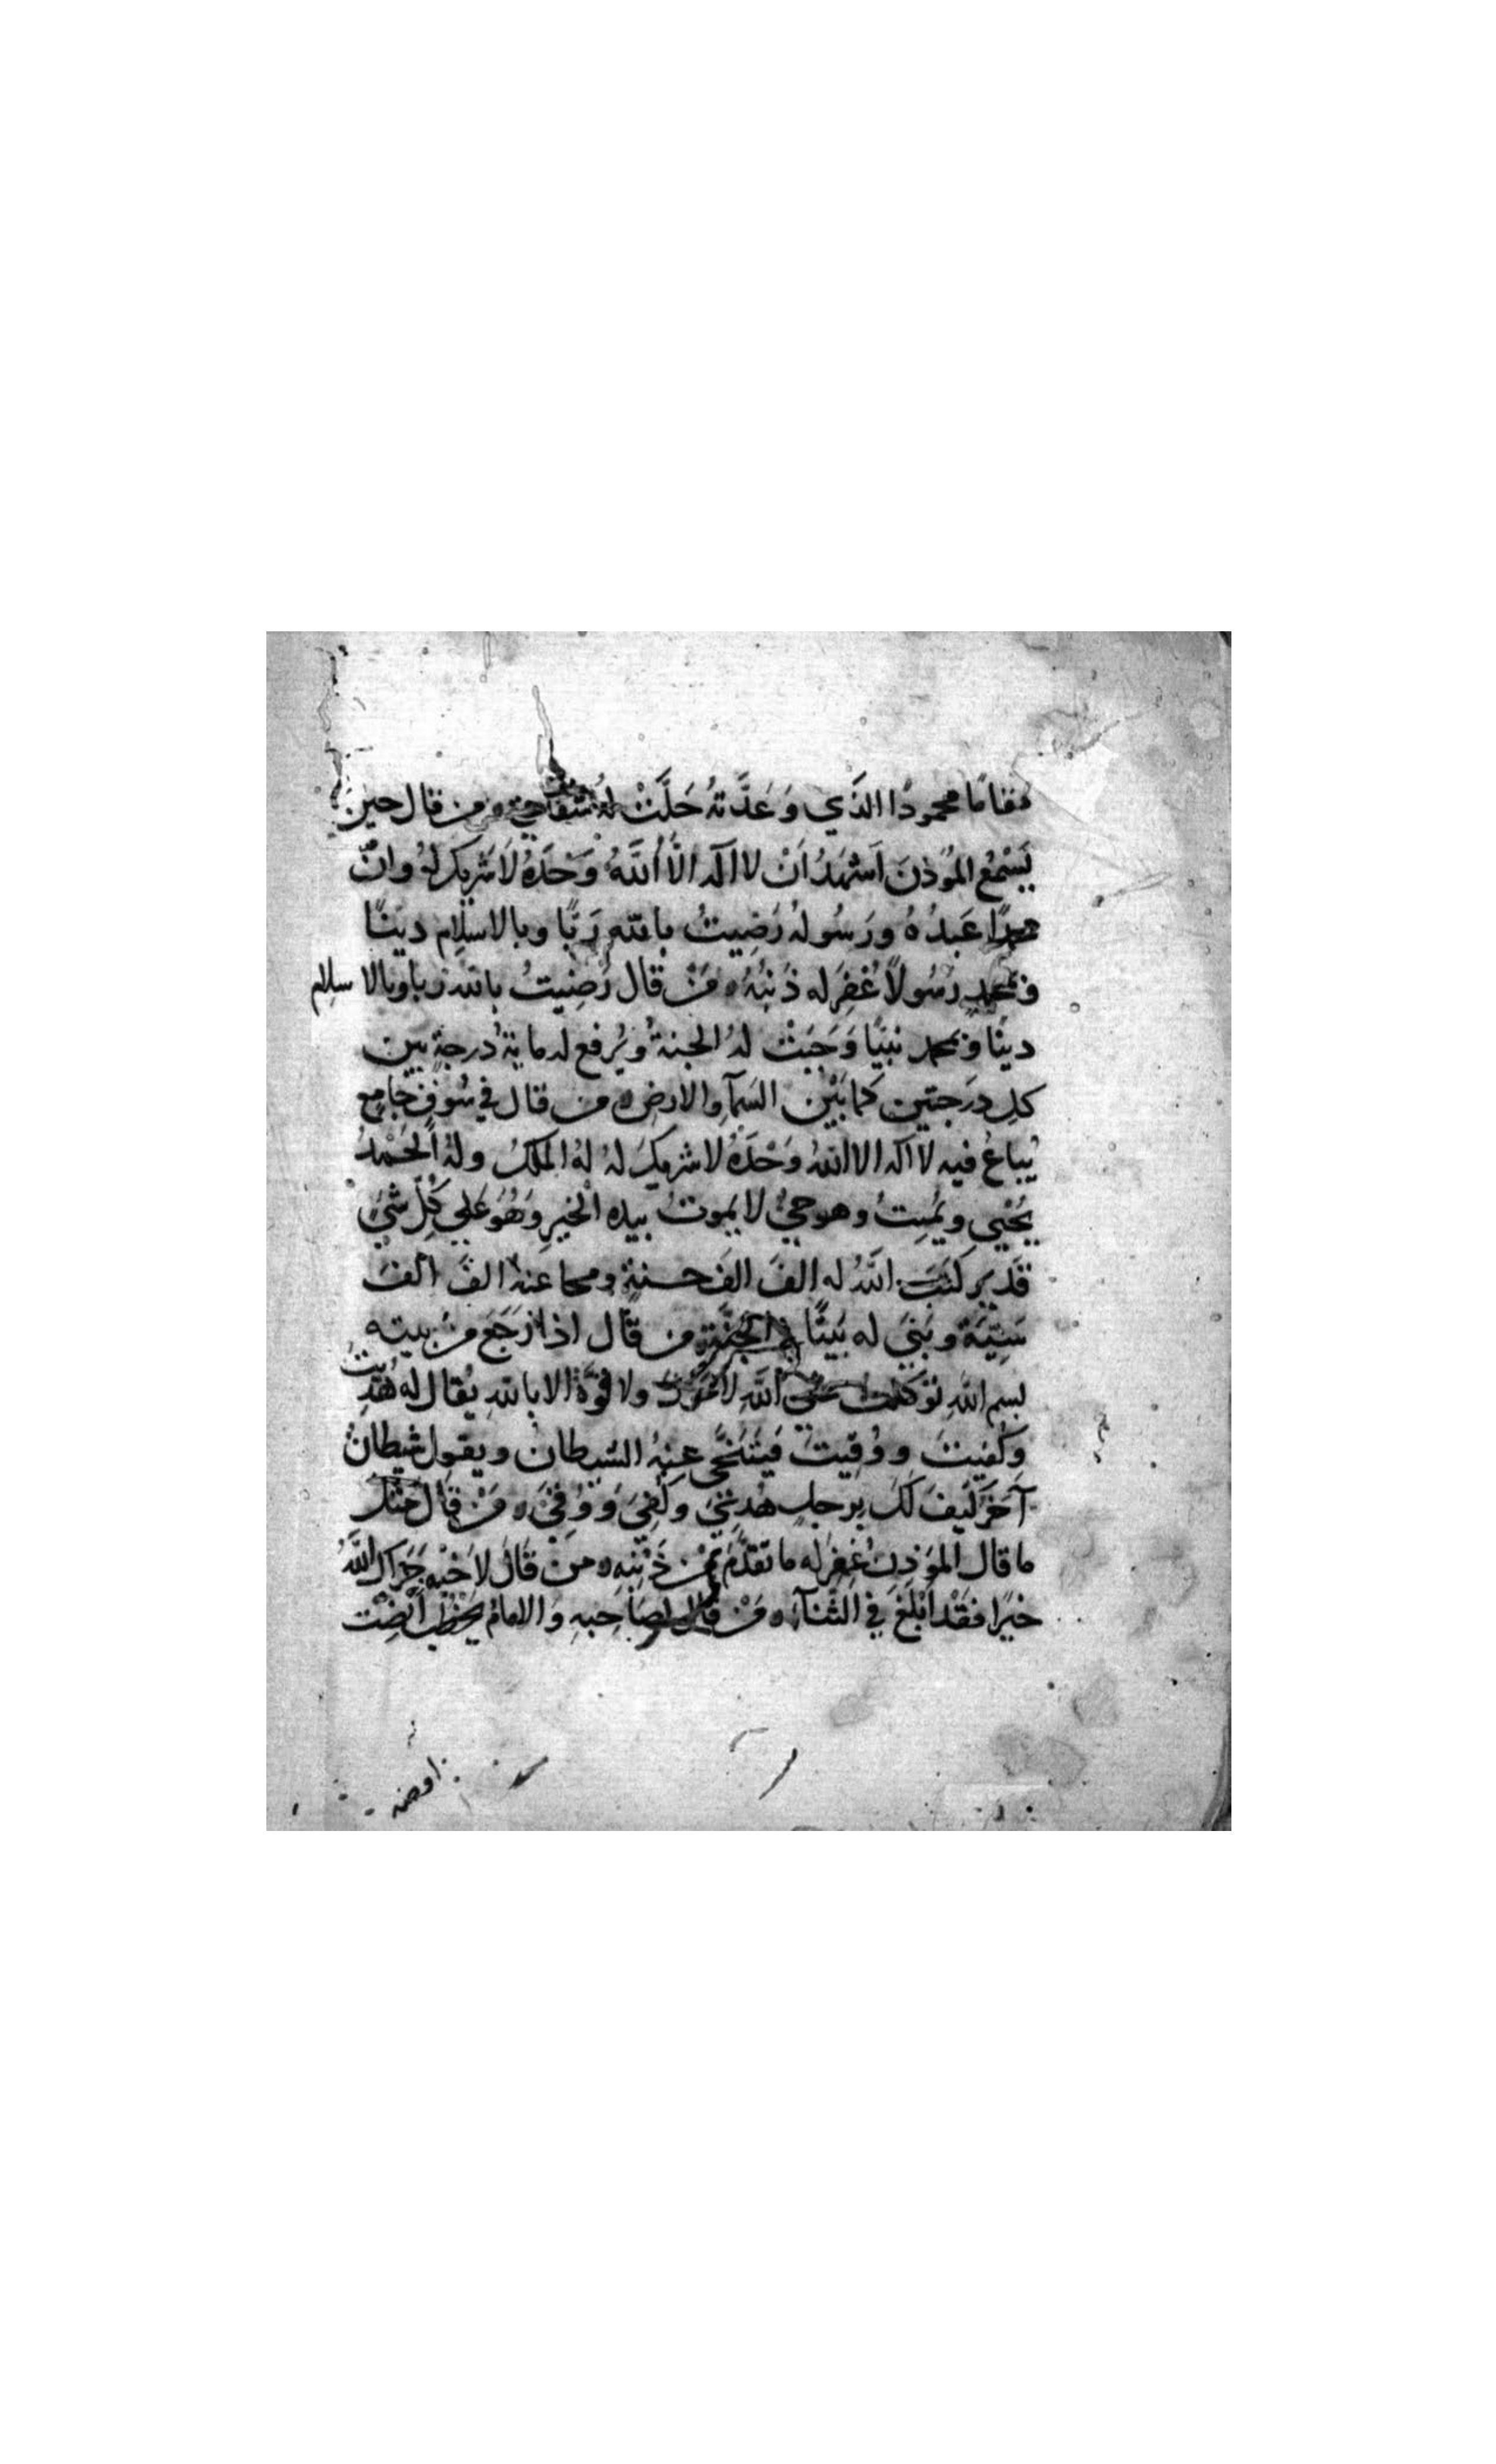 مقامًا محمودًا الذي وَعَدَّتهُ حَلَّتْ لهُ شفاعتي ه من قال حين
يَسْمَعُ المؤذنَ اَشهَدُ اَنْ لا اله الّا اللهُ وَحْدَهُ لَا شَرِيكَ لهُ وانّ
محمدًا عَبدُهُ ورَسُولهُ رَضِيتُ بالله رَبًّا وبالاسلام دينًا
وبمحمدٍ رسُولًا غُفِرَ له ذَنبُهُ ه مَنْ قال رَضِيتُ بالله ربا وبالاسلام
دينًا وبمحمد نبيًا وَجَبَتْ لهُ الجنةُ ويُرفع له ماية دَرجةٍ بين
كل دَرَجتين كما بَيْن السَمآ والارض ه من قال في سُوقٍ جَامِع
يُباعُ فيه لا اله الا اللهُ وَحْدَهُ لا شريكَ لهُ لهُ الملكُ ولهُ الحَمْدُ
يُحْيي ويُمِيتُ وهو حيٌّ لا يموتُ بيده الخيرِ وَهُوَ عَلي كُلِّ شَيْء
قَدير كَتَبَ اللهُ له الفَ الفَ حسنةٍ ومحا عنهُ الفَ الفَ
سَيّئةٍ وبَنىَ له بَيتًا في الجَنَّةِ من قال اذا رَجَعَ مِنْ بيته
بسم اللهِ توكلت على اللهِ لا حَوْلَ ولا قُوَّةَ الا باللهِ يُقال له هُدِيتَ
وكُفِيتَ ووُقِيتَ فيَتَنَحَّى عنهُ الشيطان ويقول شيطانٌ
آخَرَ كَيفَ لَكَ بِرَجلٍ هُدِيَ وكُفِيَ وَوُقِيَ ه مَنْ قال مثل
ما قال المؤذن غُفِرَ له ما تقدَّمَ مِنْ ذَنْبِهِ ه من قال لاخيه جَزاك اللهُ
خيرًا فقَدْ اَبْلَغَ في الثَّنآءِ ه مَنْ قال لصَاحِبِهِ وَالامامُ يخطب أنْصِتْ